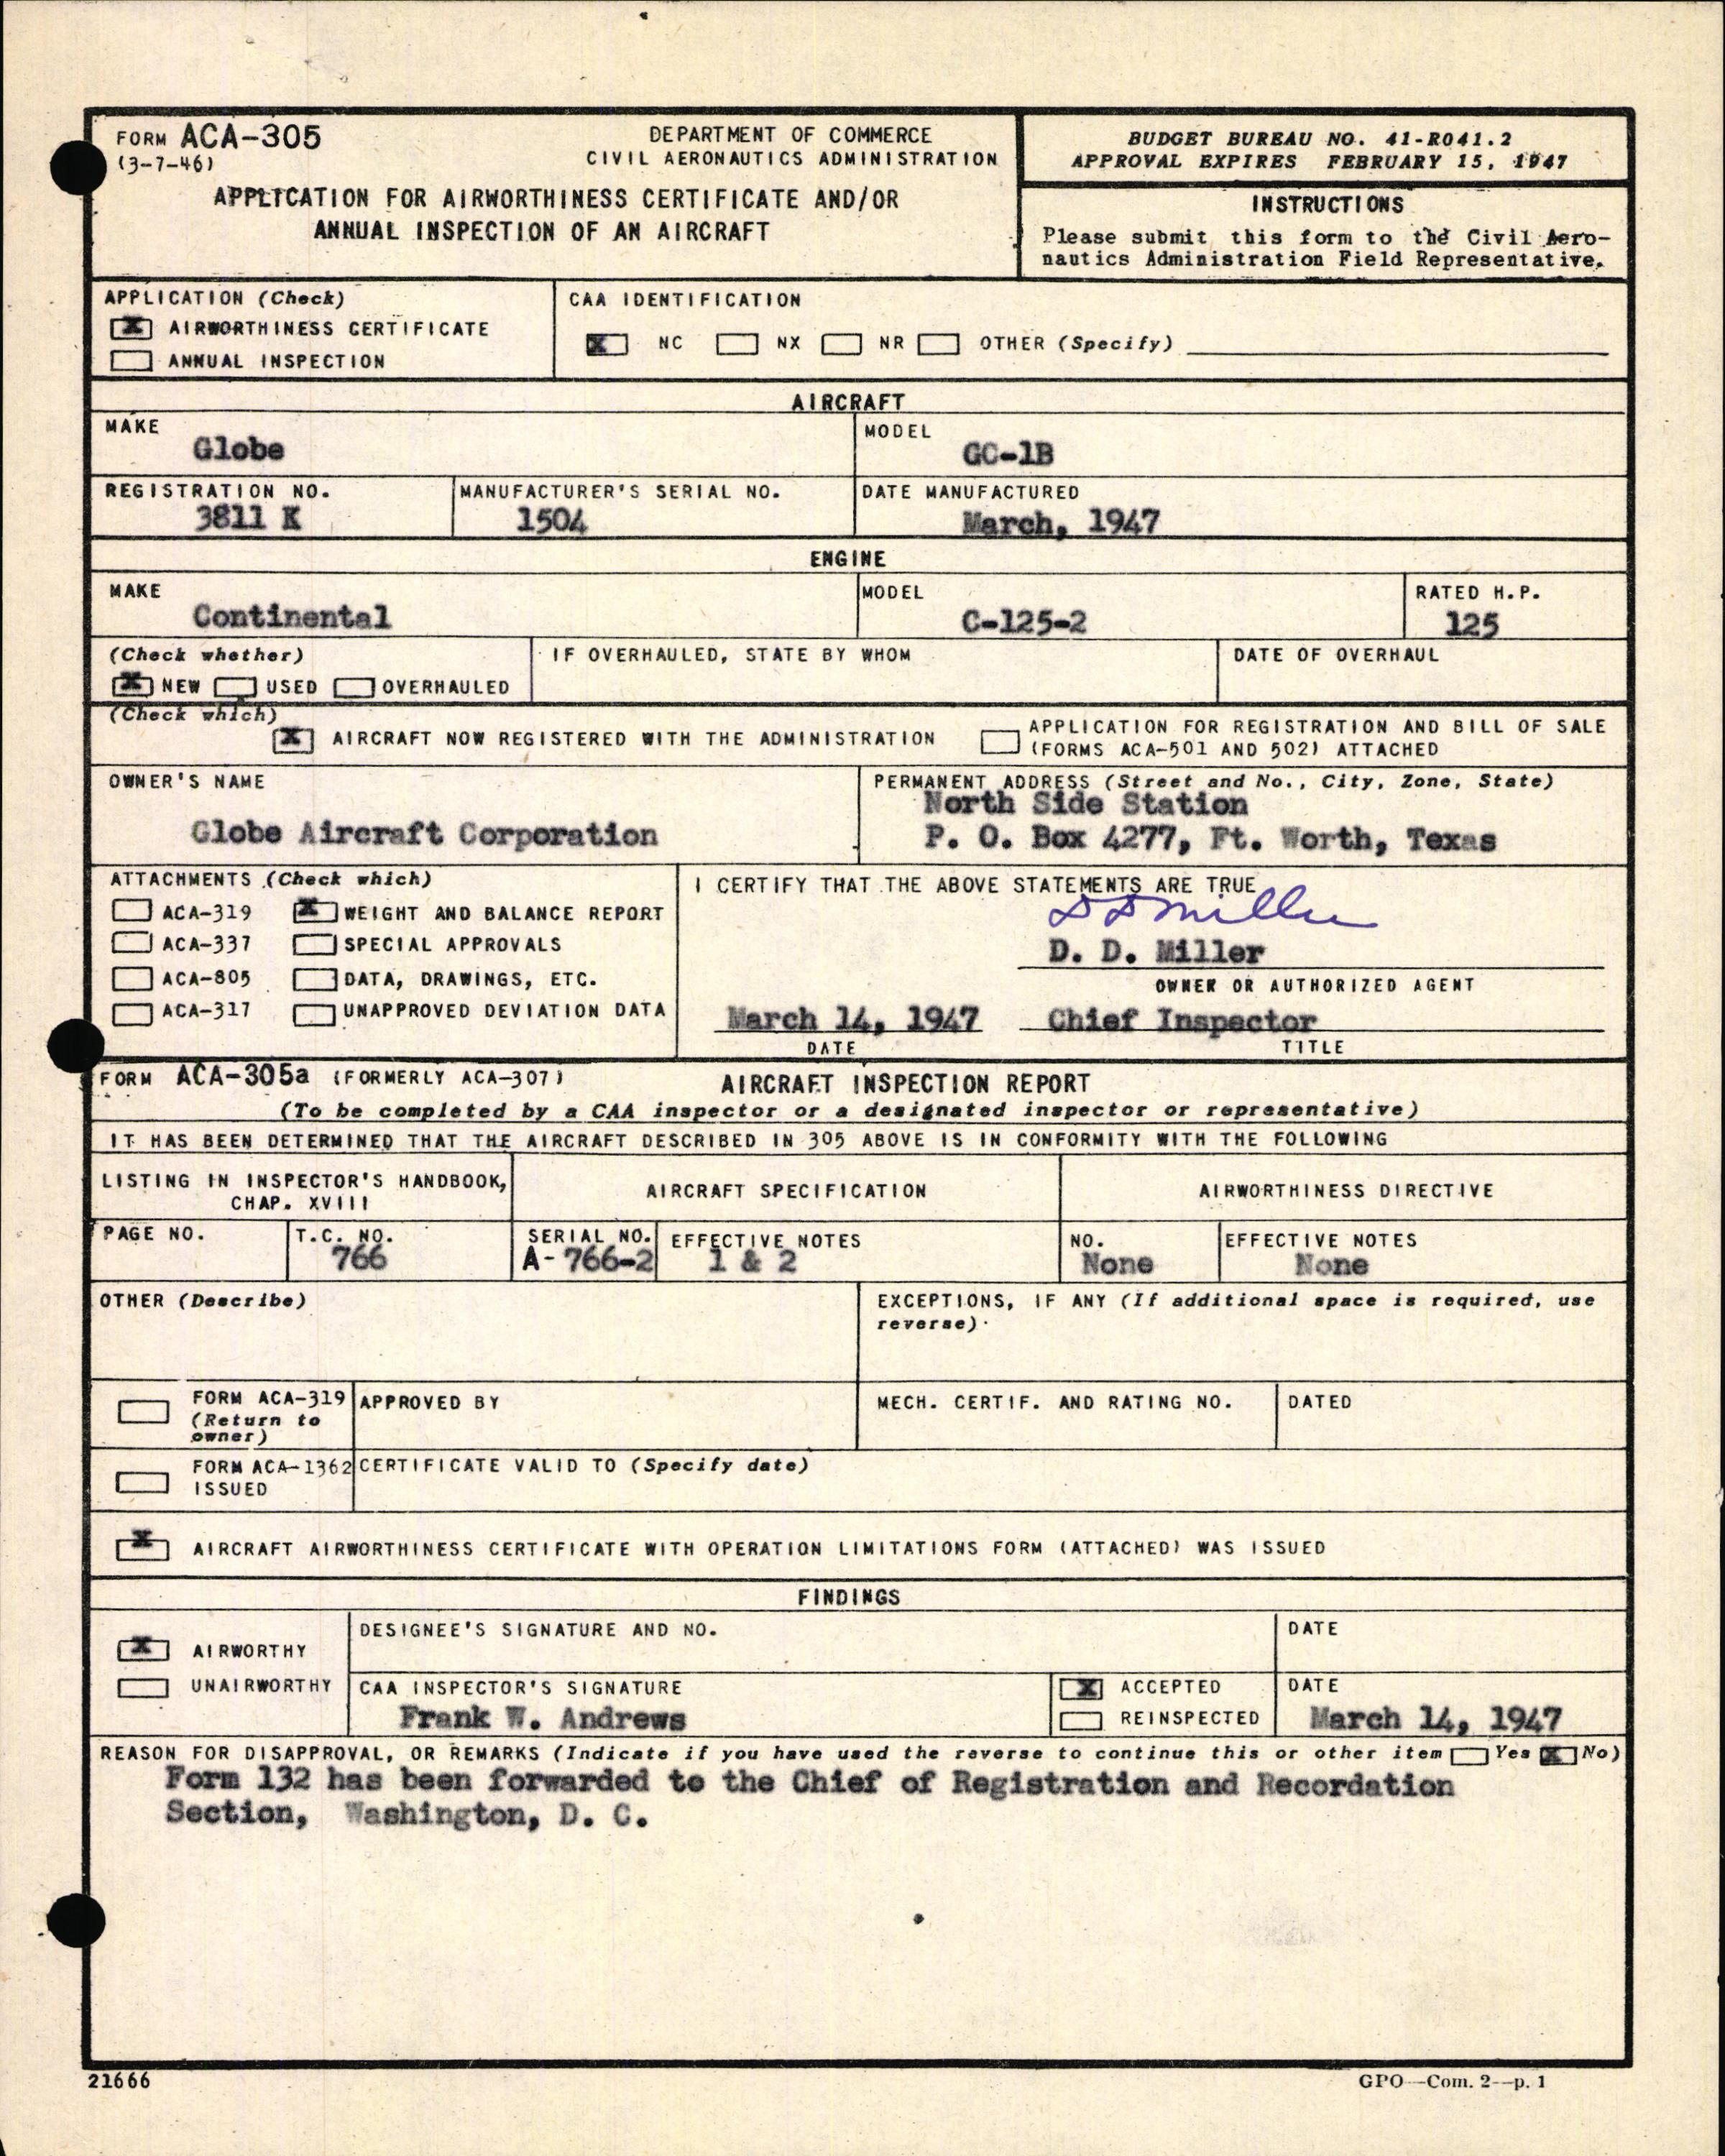 FORM ACA-305
(3-7-46)
DEPARTMENT OF COMMERCE
CIVIL AERONAUTICS ADMINISTRATION
APPLICATION FOR AIRWORTHINESS CERTIFICATE AND/OR
ANNUAL INSPECTION OF AN AIRCRAFT
BUDGET BUREAU NO. 41-R041.2
APPROVAL EXPIRES FEBRUARY 15, 1947
INSTRUCTIONS
Please submit this form to the Civil Aero-
nautics Administration Field Representative.
APPLICATION (Check)
X AIRWORTHINESS CERTIFICATE
ANNUAL INSPECTION
CAA IDENTIFICATION
X NC NX NR OTHER (Specify)
AIRCRAFT
MAKE
Globe
MODEL
GC-1B
REGISTRATION NO.
3811 K
MANUFACTURER'S SERIAL NO.
1504
DATE MANUFACTURED
March, 1947
ENGINE
MAKE
Continental
MODEL
C-125-2
RATED H.P.
125
(Check whether)
X NEW USED OVERHAULED
IF OVERHAULED, STATE BY WHOM
DATE OF OVERHAUL
(Check which)
X AIRCRAFT NOW REGISTERED WITH THE ADMINISTRATION
APPLICATION FOR REGISTRATION AND BILL OF SALE
(FORMS ACA-501 AND 502) ATTACHED
OWNER'S NAME
Globe Aircraft Corporation
PERMANENT ADDRESS (Street and No., City, Zone, State)
North Side Station
P. O. Box 4277, Ft. Worth, Texas
ATTACHMENTS (Check which)
ACA-319 X WEIGHT AND BALANCE REPORT
ACA-337 SPECIAL APPROVALS
ACA-805 DATA, DRAWINGS, ETC.
ACA-317 UNAPPROVED DEVIATION DATA
I CERTIFY THAT THE ABOVE STATEMENTS ARE TRUE
D D Miller
D. D. Miller
OWNER OR AUTHORIZED AGENT
March 14, 1947 Chief Inspector
DATE TITLE
FORM ACA-305a (FORMERLY ACA-307)
AIRCRAFT INSPECTION REPORT
(To be completed by a CAA inspector or a designated inspector or representative)
IT HAS BEEN DETERMINED THAT THE AIRCRAFT DESCRIBED IN 305 ABOVE IS IN CONFORMITY WITH THE FOLLOWING
LISTING IN INSPECTOR'S HANDBOOK,
CHAP. XVIII
AIRCRAFT SPECIFICATION
AIRWORTHINESS DIRECTIVE
PAGE NO.
T.C. NO.
766
SERIAL NO.
A- 766-2
EFFECTIVE NOTES
1 & 2
NO.
None
EFFECTIVE NOTES
None
OTHER (Describe)
EXCEPTIONS, IF ANY (If additional space is required, use
reverse)
FORM ACA-319
(Return to
owner)
APPROVED BY
MECH. CERTIF. AND RATING NO.
DATED
FORM ACA-1362
ISSUED
CERTIFICATE VALID TO (Specify date)
X AIRCRAFT AIRWORTHINESS CERTIFICATE WITH OPERATION LIMITATIONS FORM (ATTACHED) WAS ISSUED
FINDINGS
X AIRWORTHY
UNAIRWORTHY
DESIGNEE'S SIGNATURE AND NO.
DATE
CAA INSPECTOR'S SIGNATURE
Frank W. Andrews
X ACCEPTED
REINSPECTED
DATE
March 14, 1947
REASON FOR DISAPPROVAL, OR REMARKS (Indicate if you have used the reverse to continue this or other item Yes X No)
Form 132 has been forwarded to the Chief of Registration and Recordation
Section, Washington, D. C.
21666
GPO—Com. 2—p. 1